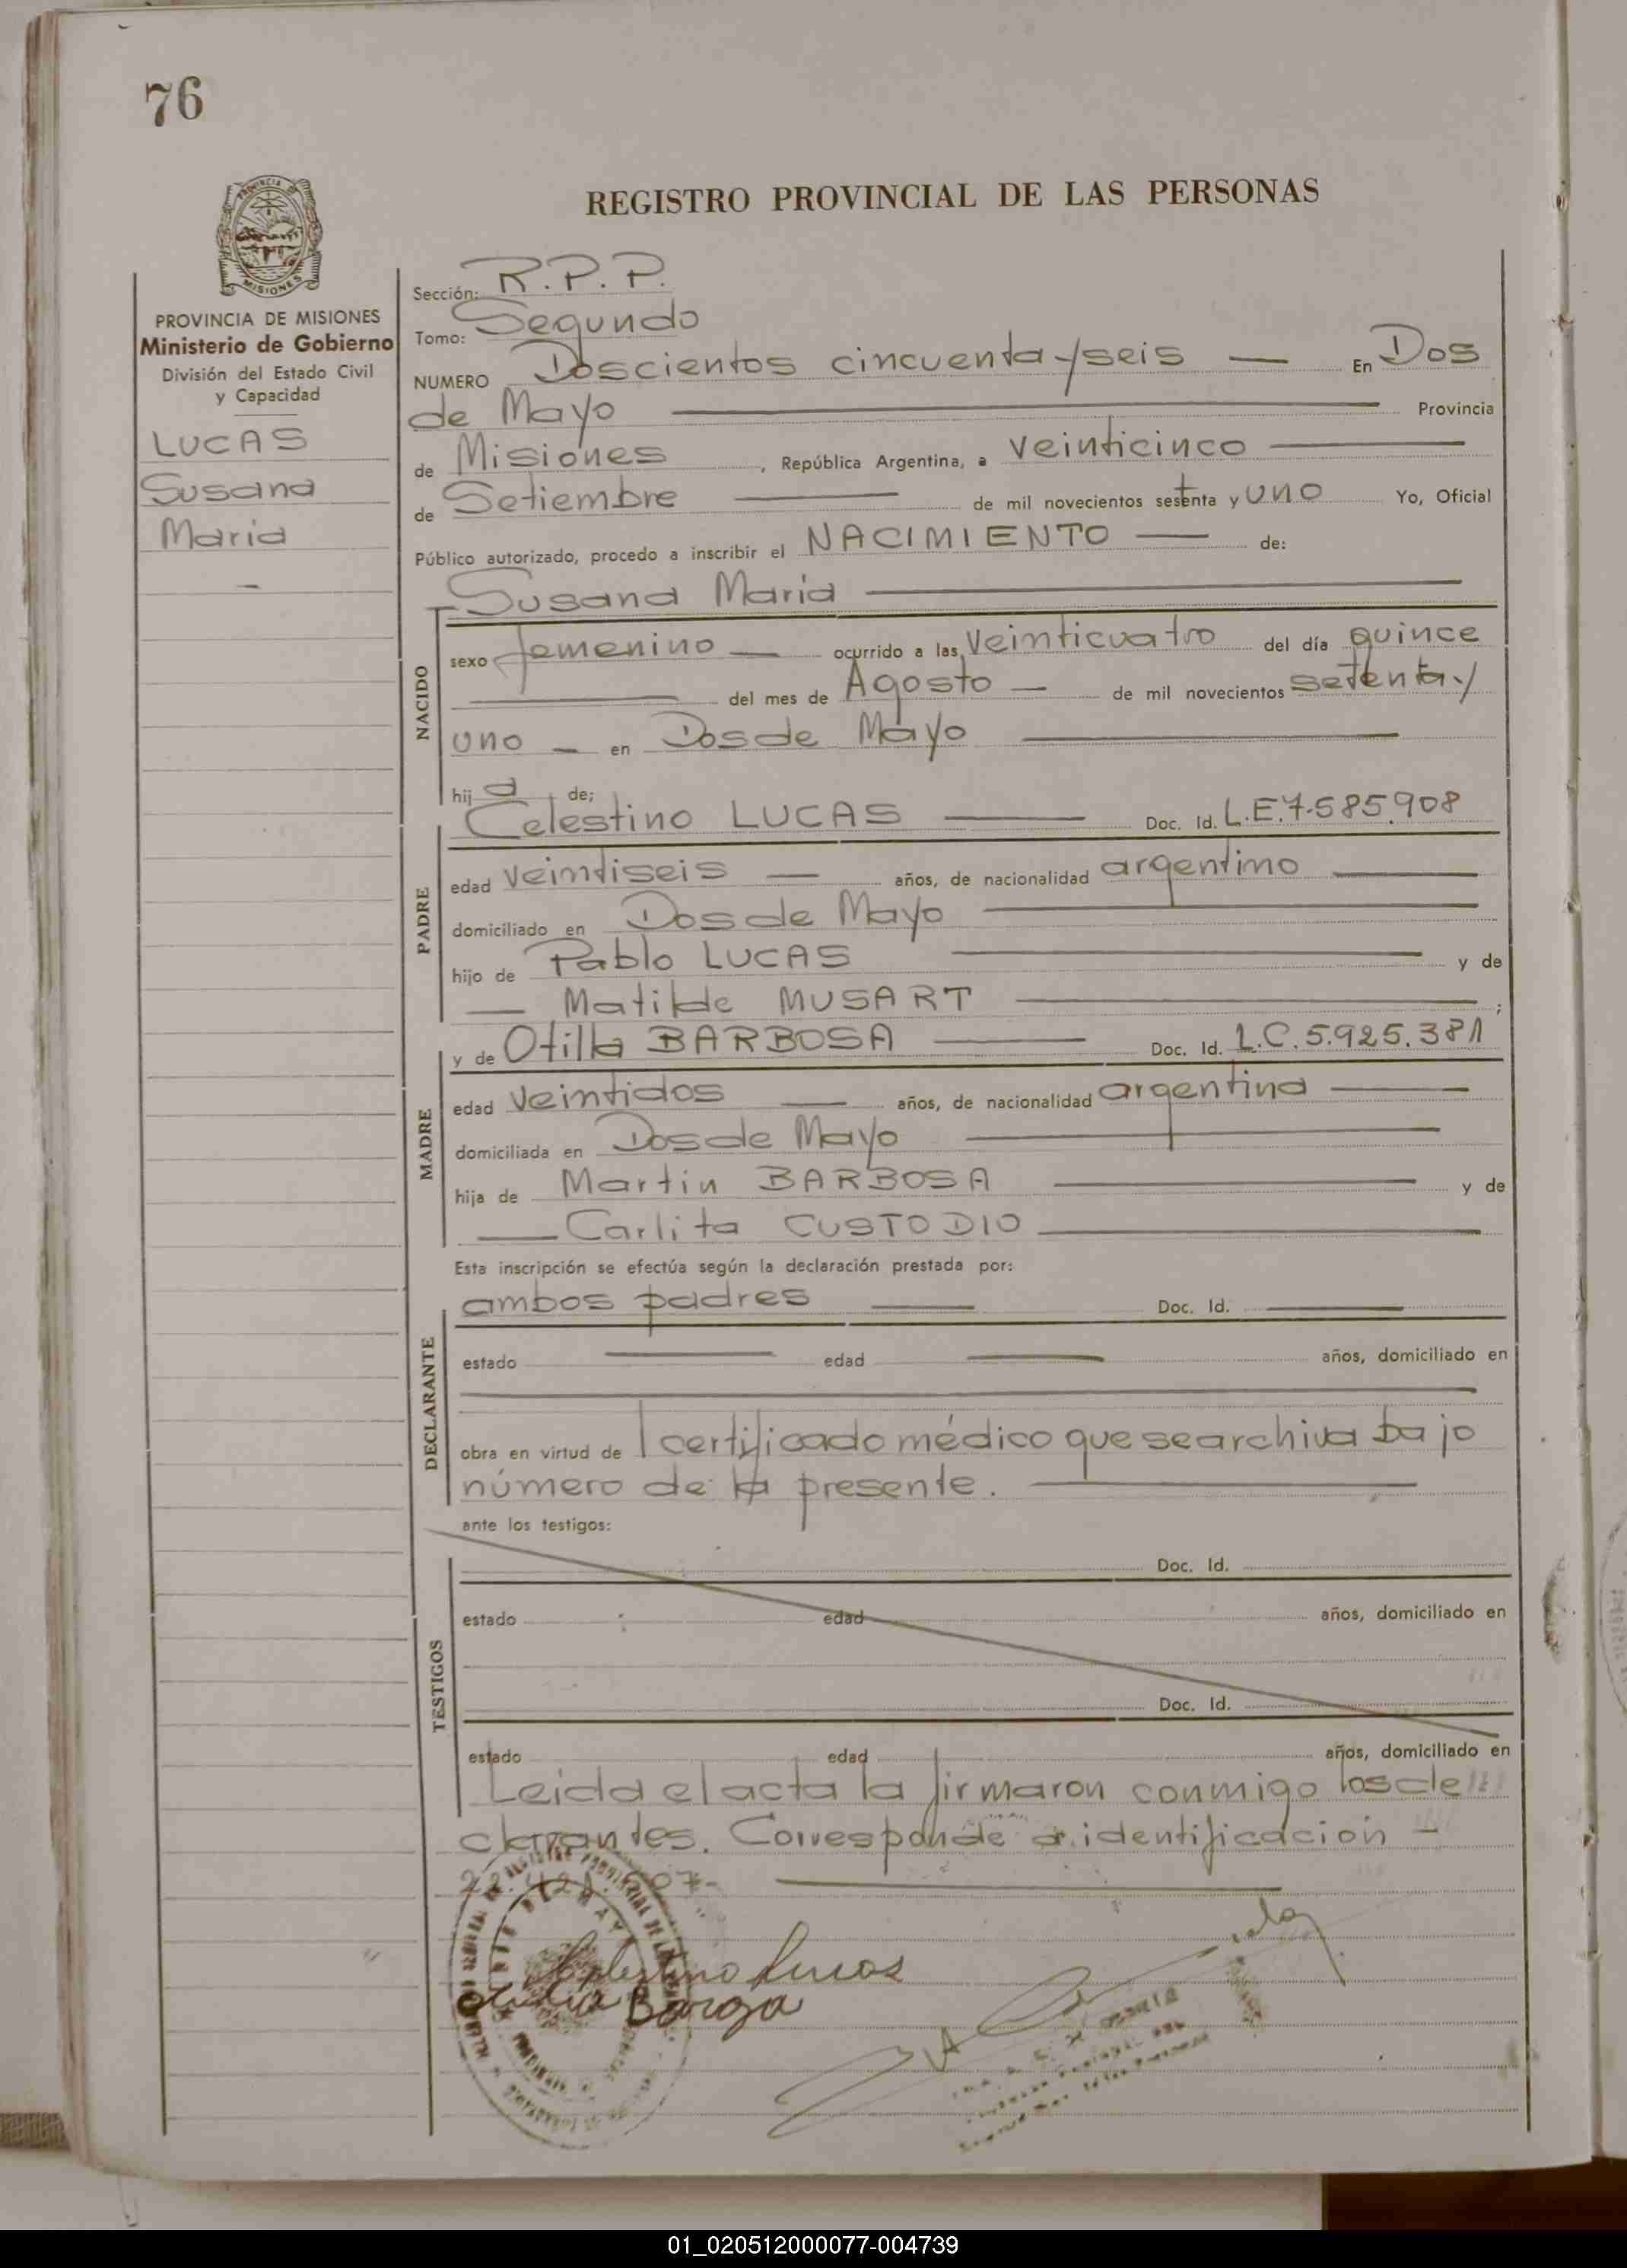 76
REGISTRO PROVINCIAL DE LAS PERSONAS
PROVINCIA DE MISIONES
Ministerio de Gobierno
División del Estado Civil
y Capacidad
LUCAS
Susana
Maria
Sección: R.P.P.
Tomo: Segundo
NUMERO Doscientos cincuenta y seis — En Dos
de Mayo — Provincia
de Misiones, República Argentina, a veinticinco —
de Setiembre — de mil novecientos setenta y uno Yo, Oficial
Público autorizado, procedo a inscribir el NACIMIENTO — de:
Susana Maria —
NACIDO
sexo femenino — ocurrido a las veinticuatro del día quince
— del mes de Agosto — de mil novecientos setenta y
uno — en Dos de Mayo —
hija de;
Celestino LUCAS — Doc. Id. L.E.7.585.908
PADRE
edad veintiseis — años, de nacionalidad argentino —
domiciliado en Dos de Mayo —
hijo de Pablo LUCAS — y de
— Matilde MUSART — ;
y de Otilia BARBOSA — Doc. Id. L.C.5.925.381
MADRE
edad veintidos — años, de nacionalidad argentina —
domiciliada en Dos de Mayo —
hija de Martin BARBOSA — y de
— Carlita CUSTODIO —
Esta inscripción se efectúa según la declaración prestada por:
ambos padres — Doc. Id. —
DECLARANTE
estado — edad — años, domiciliado en
—
obra en virtud de l certificado médico que se archiva bajo
número de la presente. —
ante los testigos:
Doc. Id.
TESTIGOS
estado edad años, domiciliado en
Doc. Id.
estado edad años, domiciliado en
Leida el acta la firmaron conmigo los de
clarantes. Corresponde a identificación —
Celestino Lucas
Barga
01_020512000077-004739